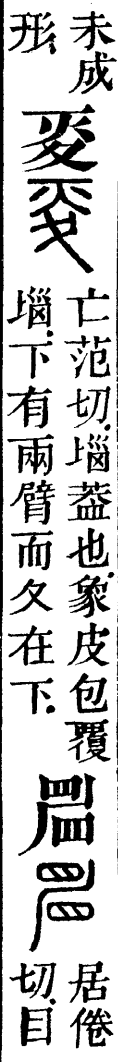 未成
形
𡕢
亡范切.堖葢也.象皮包覆
堖.下有兩臂而夂在下.
居倦
切.目